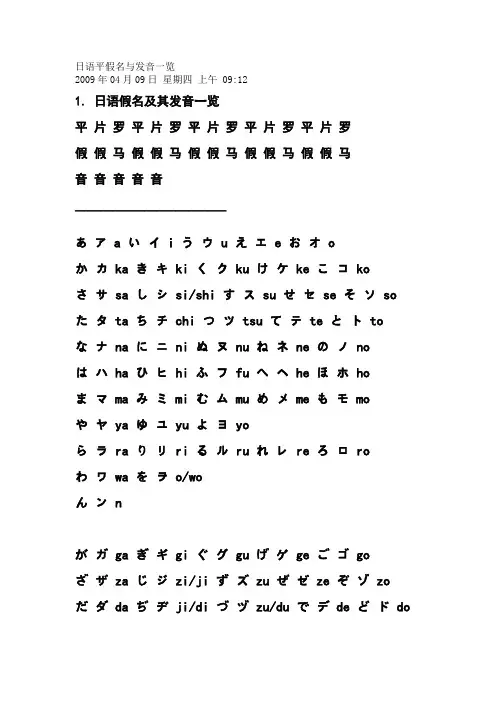 日语平假名与发音一览
2009年04月09日 星期四 上午 09:12
1. 日语假名及其发音一览
平 片 罗 平 片 罗 平 片 罗 平 片 罗 平 片 罗
假 假 马 假 假 马 假 假 马 假 假 马 假 假 马
音 音 音 音 音
あ ア a い イ i う ウ u え エ e お オ o
か カ ka き キ ki く ク ku け ケ ke こ コ ko
さ サ sa し シ si/shi す ス su せ セ se そ ソ so
た タ ta ち チ chi つ ツ tsu て テ te と ト to
な ナ na に ニ ni ぬ ヌ nu ね ネ ne の ノ no
は ハ ha ひ ヒ hi ふ フ fu へ ヘ he ほ ホ ho
ま マ ma み ミ mi む ム mu め メ me も モ mo
や ヤ ya ゆ ユ yu よ ヨ yo
ら ラ ra り リ ri る ル ru れ レ re ろ ロ ro
わ ワ wa を ヲ o/wo
ん ン n
が ガ ga ぎ ギ gi ぐ グ gu げ ゲ ge ご ゴ go
ざ ザ za じ ジ zi/ji ず ズ zu ぜ ゼ ze ぞ ゾ zo
だ ダ da ぢ ヂ ji/di づ ヅ zu/du で デ de ど ド do